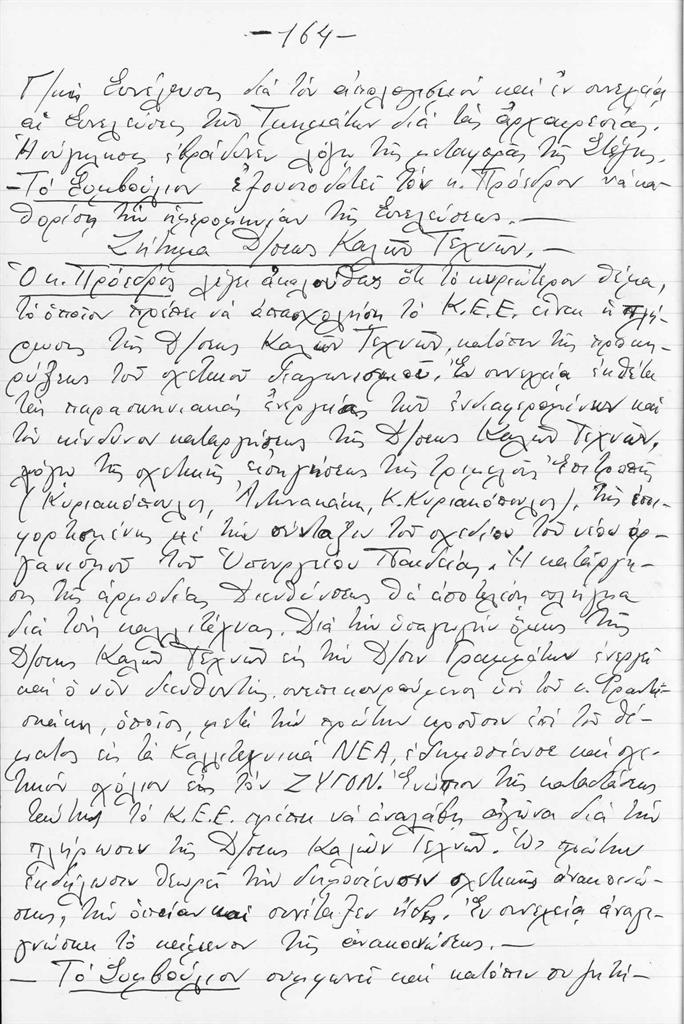 -164-
Γ/κὴ Συνέλευσις διά τόν ἀπολογισμόν καί ἐν συνεχείᾳ
αἱ Συνελεύσεις τῶν Τμημάτων διά τάς ἀρχαιρεσίας.
Ἡ σύγκλησις ἐβράδυνεν λόγῳ τῆς μεταφορᾶς τῆς Στέγης.
-Τό Συμβούλιον ἐξουσιοδοτεῖ τόν κ. Πρόεδρον νά κα-
θορίσῃ τήν ἡμερομηνίαν τῆς Συνελεύσεως.—
Ζήτημα Δ/σεως Καλῶν Τεχνῶν.—
Ὁ κ. Πρόεδρος λέγει ἀκολούθως ὅτι τό κυριώτερον θέμα,
τό ὁποῖον πρέπει νά ἀπασχολήσῃ τό Κ.Ε.Ε. εἶναι ἡ πλή-
ρωσις τῆς Δ/σεως Καλῶν Τεχνῶν, κατόπιν τῆς προκη-
ρύξεως τοῦ σχετικοῦ διαγωνισμοῦ. Ἐν συνεχείᾳ ἐκθέτει
τάς παρασκηνιακάς ἐνεργείας τῶν ἐνδιαφερομένων καί
τόν κίνδυνον καταργήσεως τῆς Δ/σεως Καλῶν Τεχνῶν,
λόγῳ τῆς σχετικῆς εἰσηγήσεως τῆς τριμελοῦς Ἐπιτροπῆς
(Κυριακόπουλος, Κ. Κυριακόπουλος), τῆς ἐπι-
φορτισμένης μέ τήν σύνταξιν τοῦ σχεδίου τοῦ νέου ὀρ-
γανισμοῦ τοῦ Ὑπουργείου Παιδείας. Ἡ κατάργη-
σις τῆς ἁρμοδίας Διευθύνσεως θά ἀποτελέσῃ πλῆγμα
διά τούς καλλιτέχνας. Διά τήν ὑπαγωγήν ὅμως τῆς
Δ/σεως Καλῶν Τεχνῶν εἰς τήν Δ/σιν Γραμμάτων ἐνεργεῖ
καί ὁ νῦν διευθυντής, ἐπικουρούμενος ὑπό τοῦ κ. Φραντζι-
σκάκη, ὁ ὁποῖος, μετά τήν πρώτην κροῦσιν ἐπί τοῦ θέ-
ματος εἰς τά Καλλιτεχνικά ΝΕΑ, ἐδημοσίευσε καί σχε-
τικόν σχόλιον εἰς τόν ΖΥΓΟΝ. Ἐνώπιον τῆς καταστάσεως
ταύτης τό Κ.Ε.Ε. πρέπει νά ἀναλάβῃ ἀγῶνα διά τήν
πλήρωσιν τῆς Δ/σεως Καλῶν Τεχνῶν. Ὡς πρώτην
ἐκδήλωσιν θεωρεῖ τήν δημοσίευσιν σχετικῆς ἀνακοινώ-
σεως, τήν ὁποίαν καί συνέταξεν ἤδη. Ἐν συνεχείᾳ ἀναγι-
γνώσκει τό κείμενον τῆς ἀνακοινώσεως.—
— Τό Συμβούλιον συμφωνεῖ καί κατόπιν συζητή-